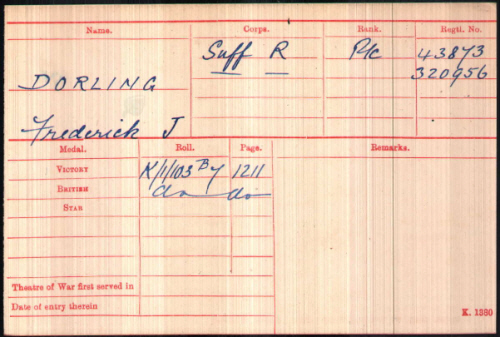 Name. Corps. Rank. Regtl. No.
Suff R Pte 43873
DORLING 320956
Frederick J
Medal. Roll. Page. Remarks.
VICTORY K/1/103 B7 1211
BRITISH do do
STAR
Theatre of War first served in
Date of entry therein
K. 1380